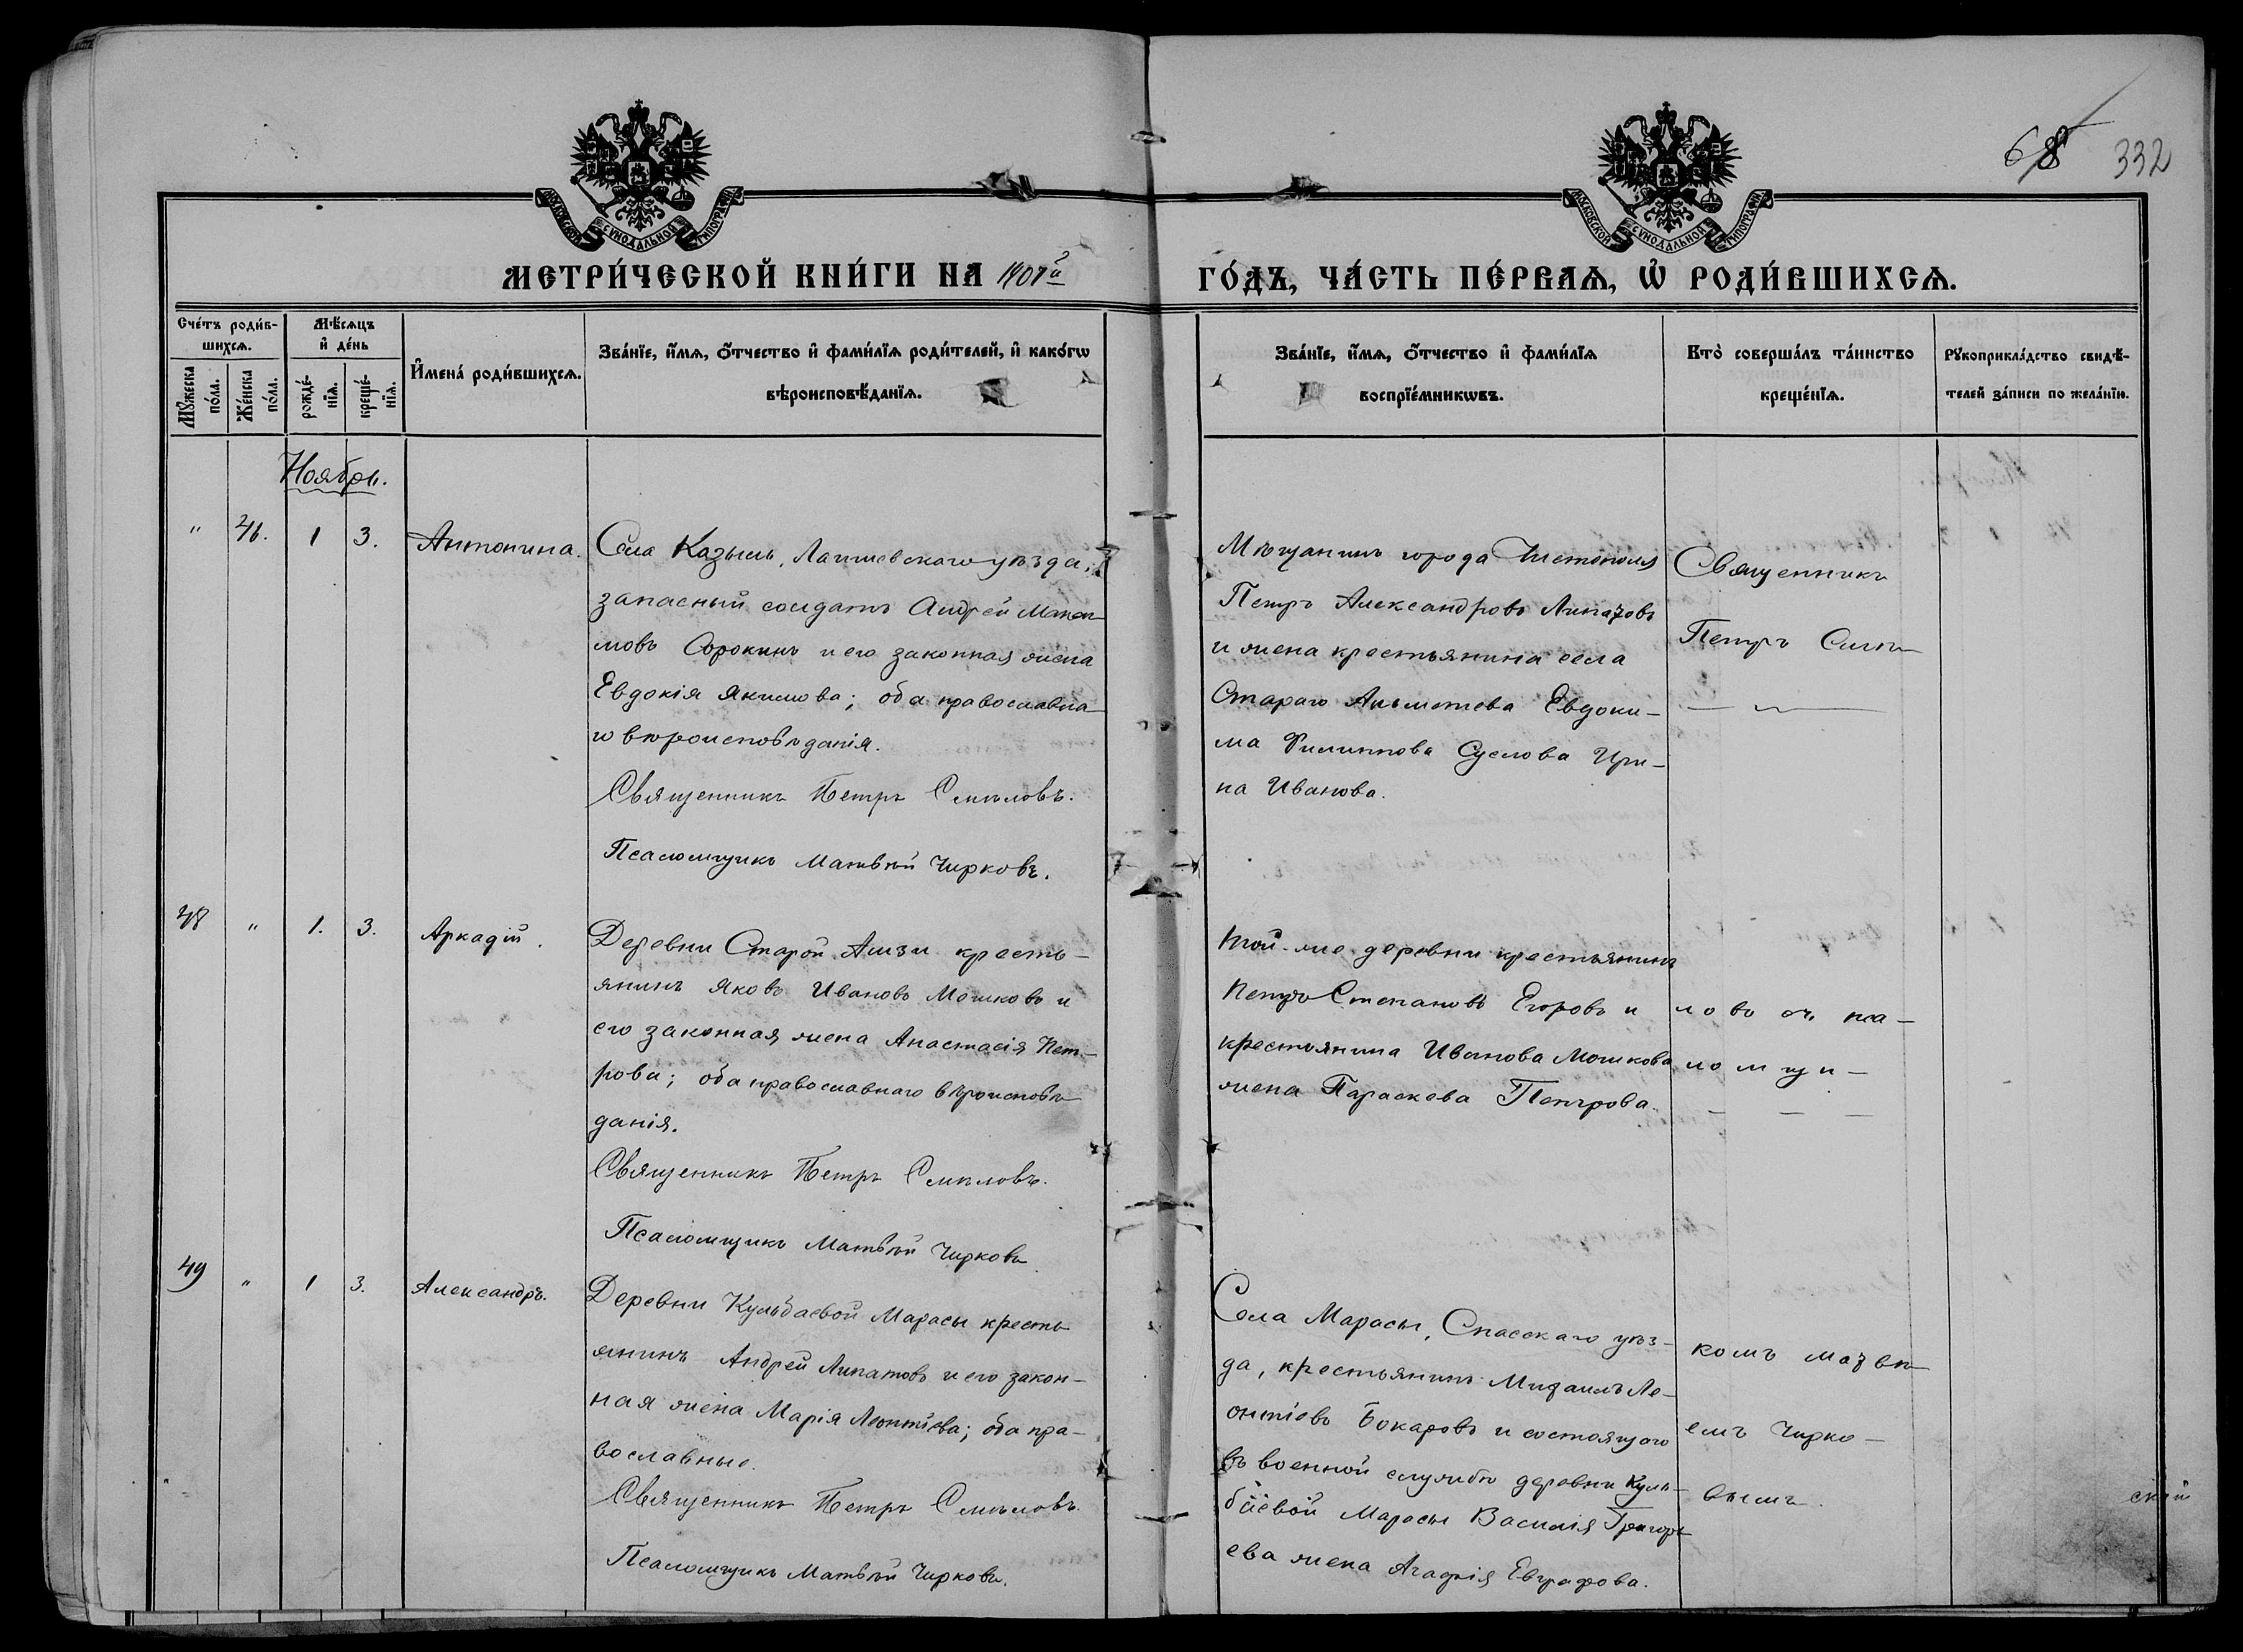 68 332
МОСКОВСКОЙ СѴНОДАЛЬНОЙ ТИПОГРАФІИ
МОСКОВСКОЙ СѴНОДАЛЬНОЙ ТИПОГРАФІИ
МЕТРИ́ЧЕСКОЙ КНИ́ГИ НА 1907й
ГО́ДЪ, ЧА́СТЬ ПЕ́РВАѦ, Ѡ҆ РОДИ́ВШИХСѦ.
Сче́тъ роди́в-
шихсѧ.
Мꙋ́жеска по́ла.
Же́нска по́ла.
Мѣ́сѧцъ
и҆ де́нь
рожде́-
нїѧ.
креще́-
нїѧ.
И҆мена́ роди́вшихсѧ.
Зва́нїе, и҆́мѧ, ѻ҆́тчество и҆ фами́лїѧ роди́телей, и҆ како́гѡ
вѣроисповѣ́данїѧ.
Зва́нїе, и҆́мѧ, ѻ҆́тчество и҆ фами́лїѧ
воспрїе́мникѡвъ.
Кто̀ соверша́лъ та́инство
креще́нїѧ.
Рꙋкоприкла́дство свидѣ́-
телей за́писи по жела́нїю.
Ноябрь.
" 46. 1 3. Антонина.
Села Казыль, Лаишевскаго уѣзда,
запасный солдатъ Андрей Макси-
мовъ Сорокинъ и его законная жена
Евдокія Якимова; оба православна-
го вѣроисповѣданія.
Священникъ Петръ Смѣловъ.
Псаломщикъ Матвѣй Чирковъ.
Мѣщанинъ города Чистополя
Петръ Александровъ Липатовъ
и жена крестьянина села
Стараго Альметева Евдоки-
ма Филиппова Суслова Ири-
на Иванова.
Священникъ
Петръ Смѣ-
48 " 1. 3. Аркадій.
Деревни Старой Амзи кресть-
янинъ Яковъ Ивановъ Мошковъ и
его законная жена Анастасія Пет-
рова; оба православнаго вѣроисповѣ-
данія.
Священникъ Петръ Смѣловъ.
Псаломщикъ Матвѣй Чирковъ
Той-же деревни крестьянинъ
Петръ Степановъ Егоровъ и
крестьянина Иванова Мошкова
жена Параскева Петрова.
ловъ съ пса-
ломщи-
49 " 1 3. Александръ.
Деревни Кульбаевой Марасы кресть
янинъ Андрей Липатовъ и его закон-
ная жена Марія Леонтіева; оба пра-
вославные.
Священникъ Петръ Смѣловъ.
Псаломщикъ Матвѣй Чирковъ.
Села Марасы, Спасскаго уѣз-
да, крестьянинъ Михаилъ Ле-
онтіевъ Бокаровъ и состоящаго
въ военной службѣ деревни Куль-
баевой Марасы Василія Григорь
ева жена Агафія Евграфова.
комъ Матвѣ-
емъ Чирко-
вымъ.